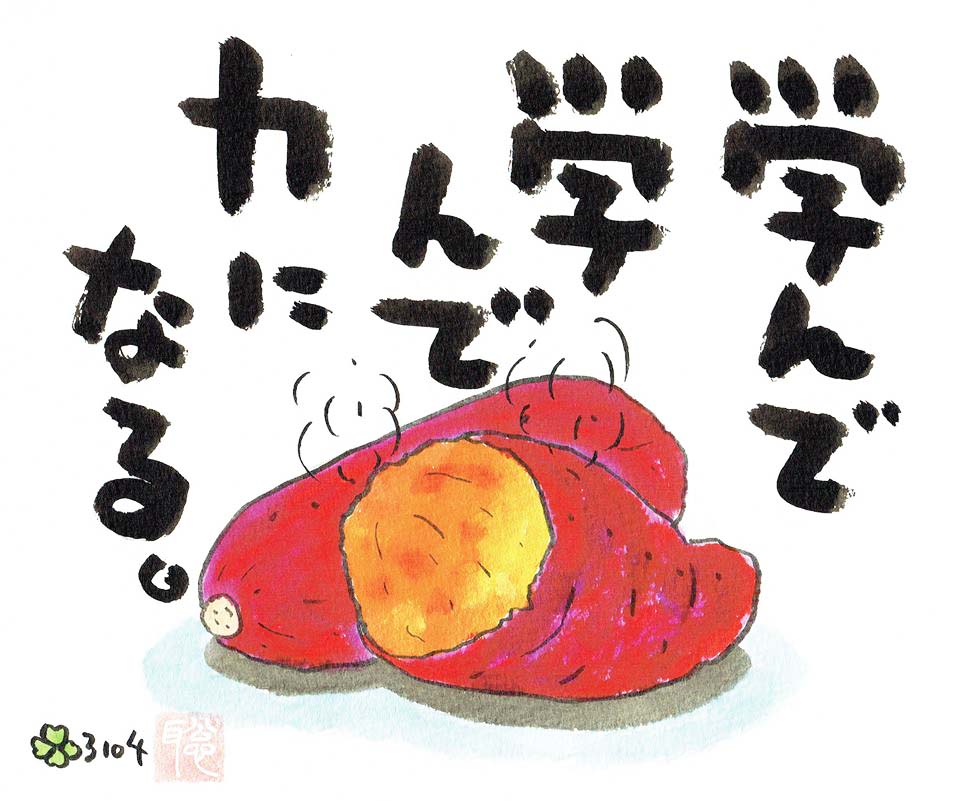 学んで
学んで
力に
なる。
3104
聡